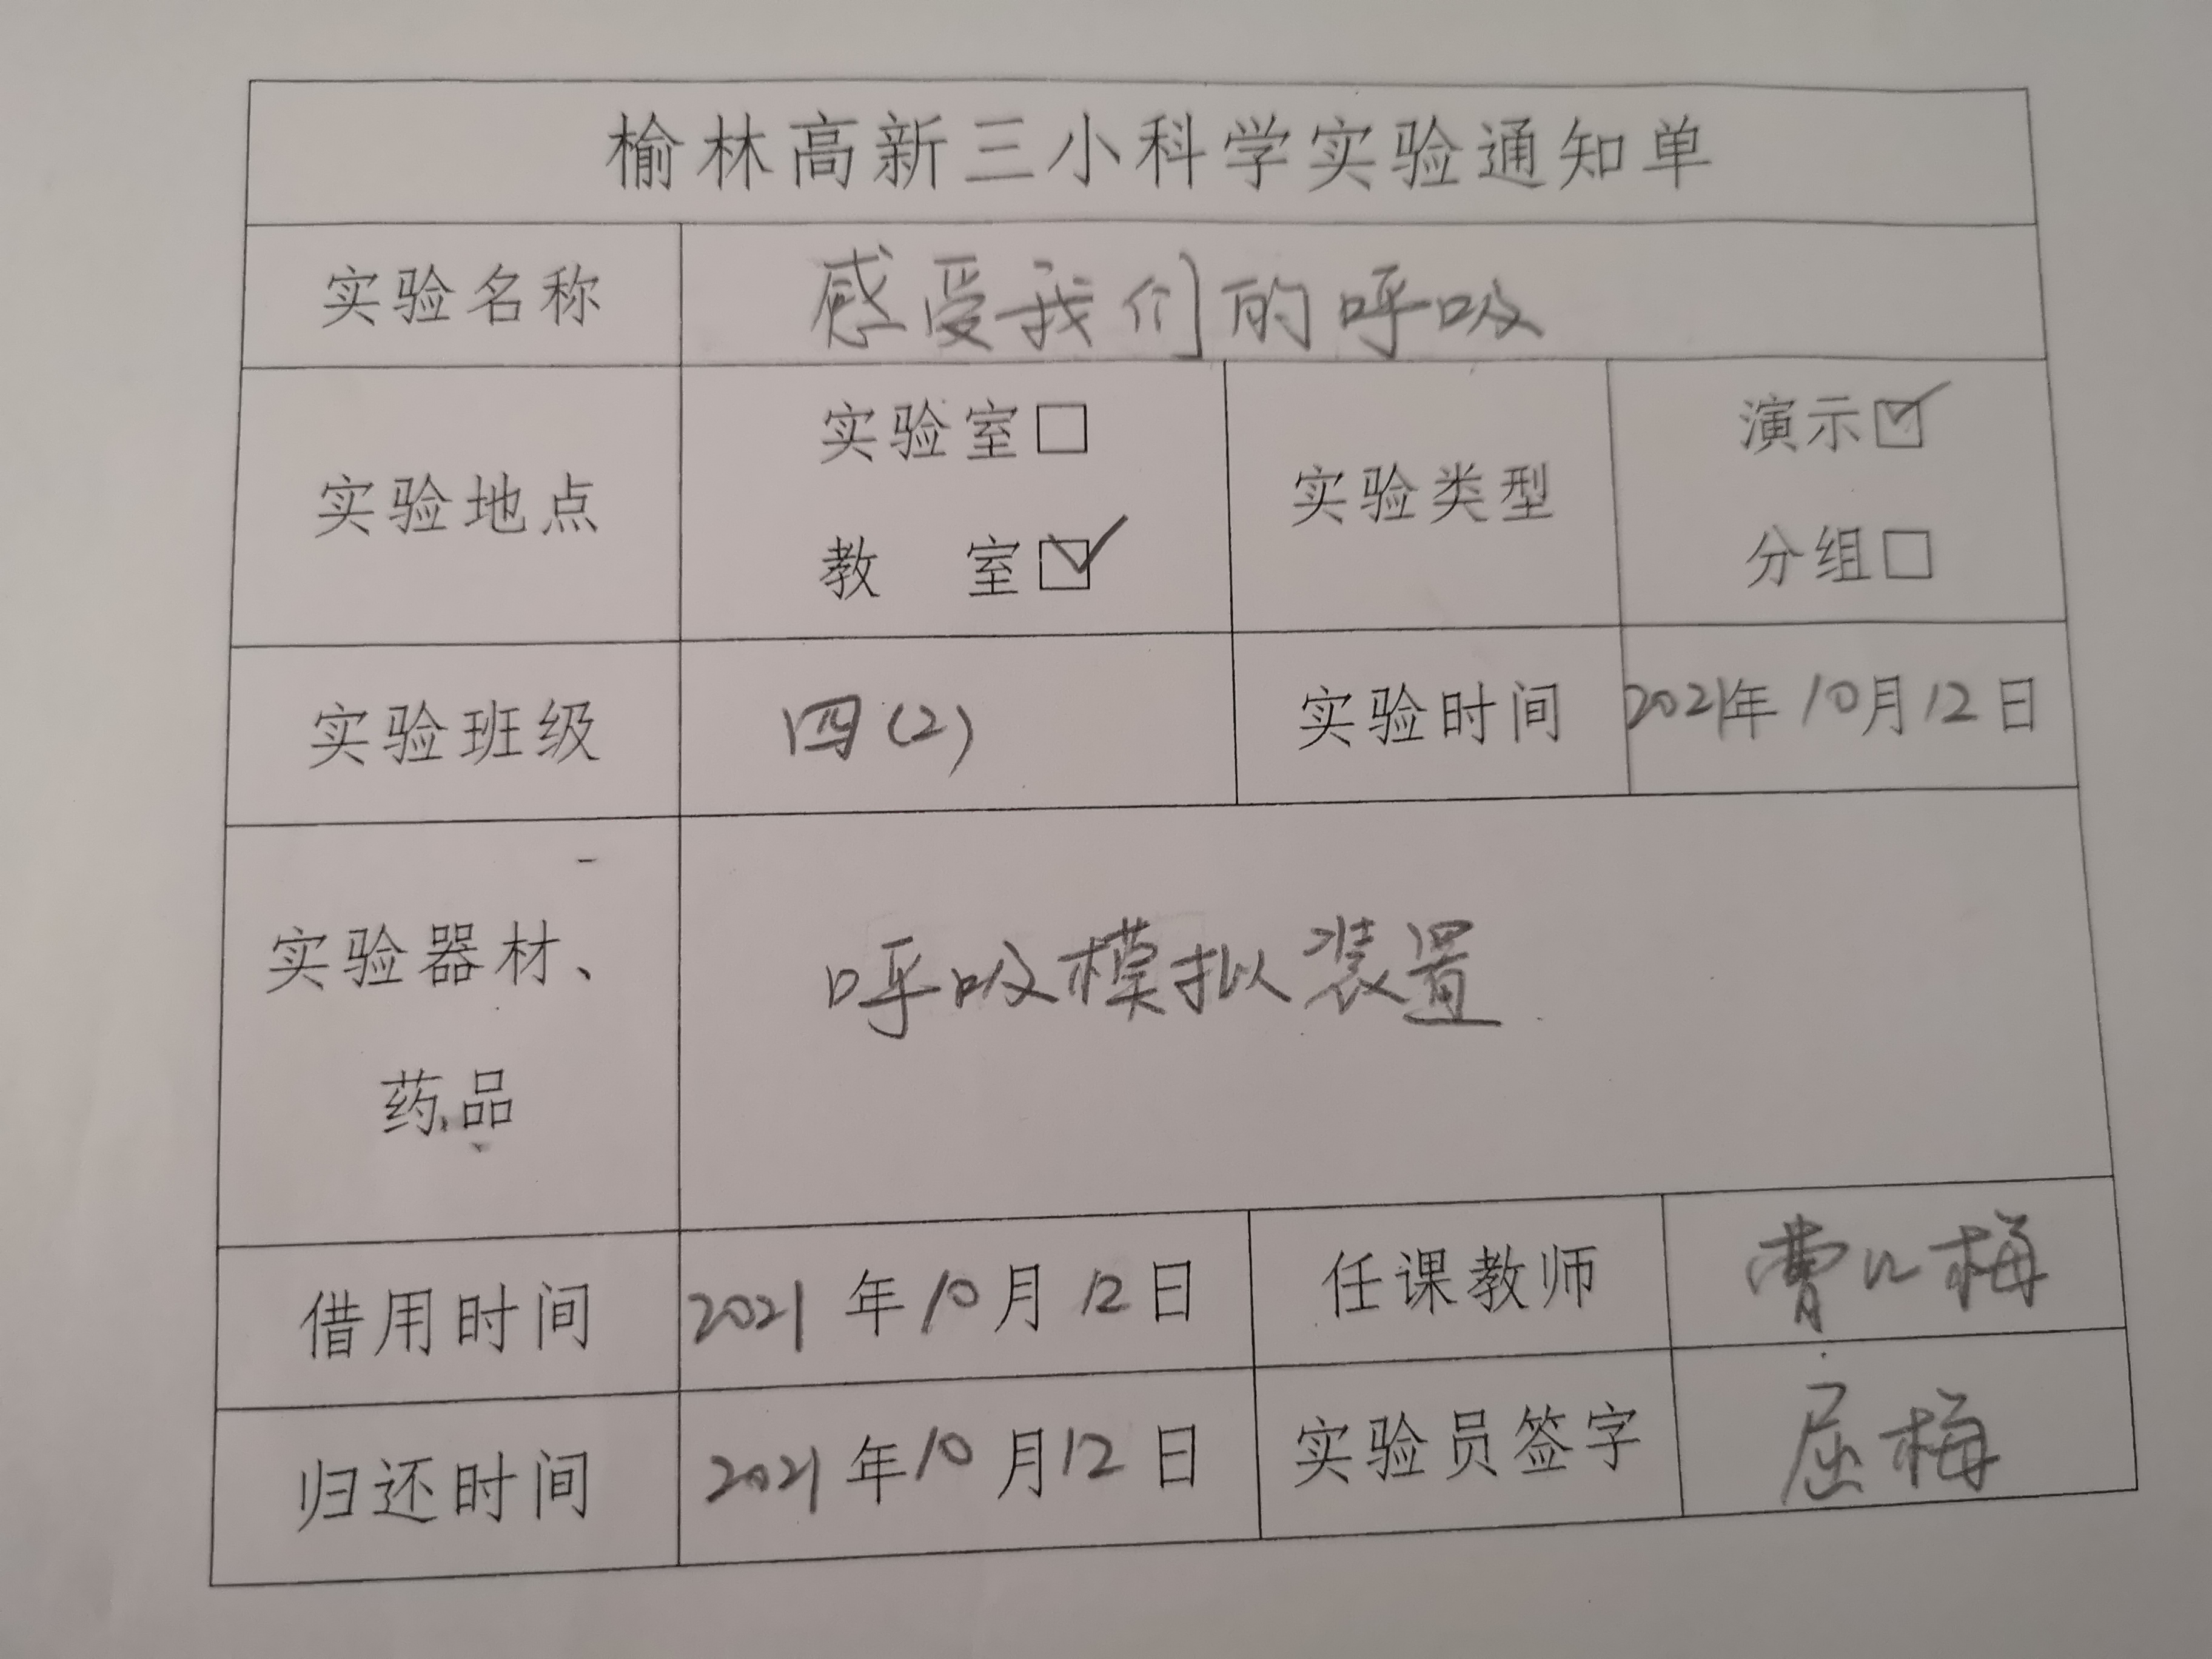 榆林高新三小科学实验通知单
实验名称 感受我们的呼吸
实验地点 实验室□ 教 室☑ 实验类型 演示☑ 分组□
实验班级 四(2) 实验时间 2021年10月12日
实验器材、药品 呼吸模拟装置
借用时间 2021年10月12日 任课教师 曹 梅
归还时间 2021年10月12日 实验员签字 屈梅